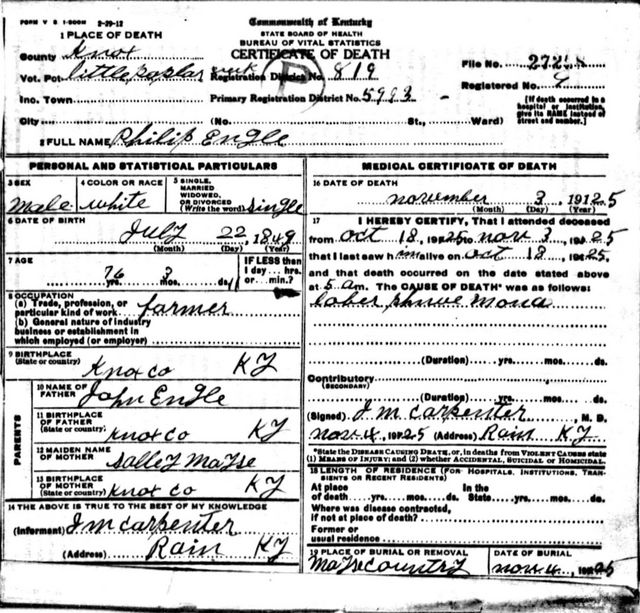 FORM V S 1-500M 2-29-12
Commonwealth of Kentucky
STATE BOARD OF HEALTH
BUREAU OF VITAL STATISTICS
CERTIFICATE OF DEATH
1 PLACE OF DEATH
County Knox
Vot. Pct little poplar creek Registration District No. 819
Inc. Town Primary Registration District No. 5993
City (No. St., Ward)
File No.
Registered No. 4
[If death occurred in a hospital or institution, give its NAME instead of street and number.]
2 FULL NAME Philip Engle
PERSONAL AND STATISTICAL PARTICULARS
3 SEX
Male
4 COLOR OR RACE
white
5 SINGLE, MARRIED WIDOWED, OR DIVORCED
(Write the word) single
6 DATE OF BIRTH
July 22, 1849
(Month) (Day) (Year)
7 AGE
76 yrs. 3 mos. ds.
IF LESS than 1 day... hrs. or... min.?
8 OCCUPATION
(a) Trade, profession, or particular kind of work farmer
(b) General nature of industry business or establishment in which employed (or employer)
9 BIRTHPLACE
(State or country) Knox co KY
PARENTS
10 NAME OF FATHER John Engle
11 BIRTHPLACE OF FATHER
(State or country) Knox co KY
12 MAIDEN NAME OF MOTHER Salley Mayse
13 BIRTHPLACE OF MOTHER
(State or country) Knox co KY
14 THE ABOVE IS TRUE TO THE BEST OF MY KNOWLEDGE
(Informant) J m carpenter
(Address) Rain KY
MEDICAL CERTIFICATE OF DEATH
16 DATE OF DEATH
november 3, 1925
(Month) (Day) (Year)
17 I HEREBY CERTIFY, That I attended deceased
from oct 18, 1925 to nov 3, 1925
that I last saw him alive on oct 18, 1925,
and that death occurred on the date stated above
at 5 am. The CAUSE OF DEATH* was as follows:
lober phnue mona
(Duration) yrs. mos. ds.
Contributory
(SECONDARY)
(Duration) yrs. mos. ds.
(Signed) J m carpenter, M. D.
nov 4, 1925 (Address) Rain KY
*State the DISEASE CAUSING DEATH, or, in deaths from VIOLENT CAUSES state (1) MEANS OF INJURY; and (2) whether ACCIDENTAL, SUICIDAL or HOMICIDAL.
18 LENGTH OF RESIDENCE (FOR HOSPITALS, INSTITUTIONS, TRANSIENTS OR RECENT RESIDENTS)
At place of death yrs. mos. ds. In the State yrs. mos. ds.
Where was disease contracted,
if not at place of death?
Former or
usual residence
19 PLACE OF BURIAL OR REMOVAL
Mayse
DATE OF BURIAL
nov 4, 1925